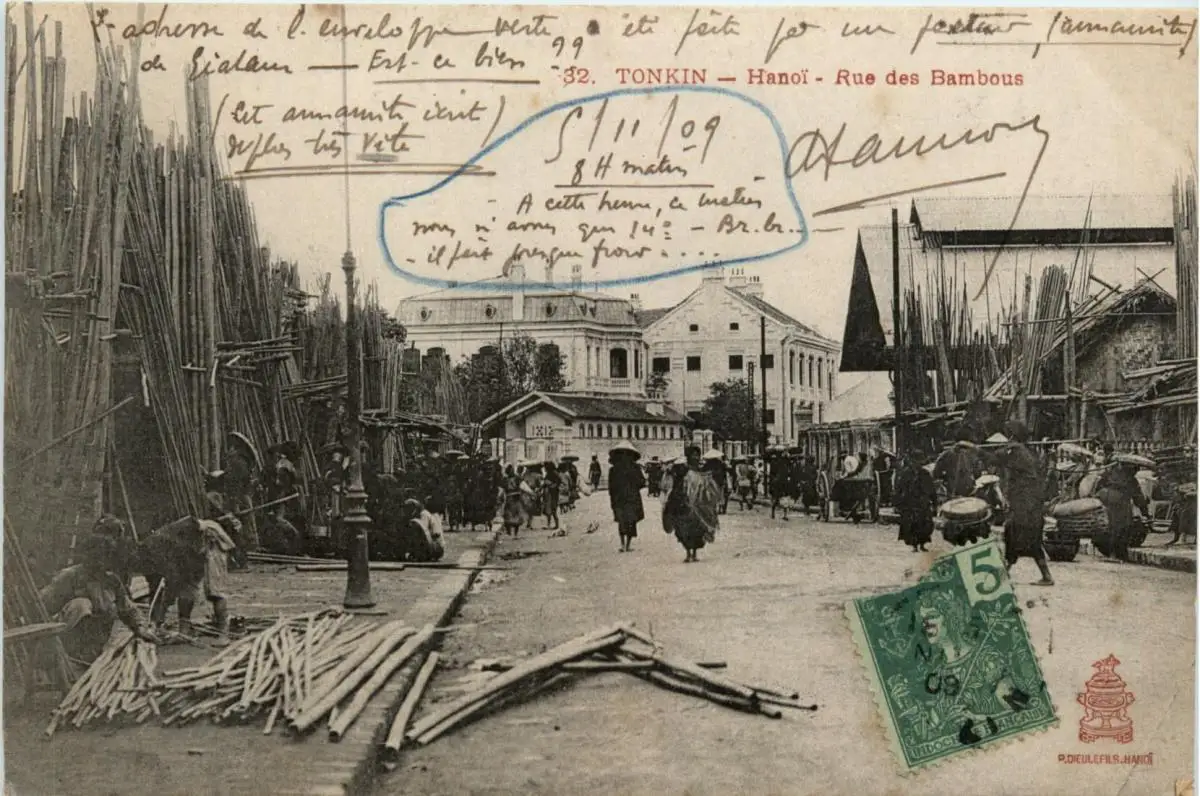 L'adresse de l'enveloppe verte a été faite par un facteur (annamite)
de Gialam — Est-ce bien ??
32. TONKIN — Hanoï - Rue des Bambous
(Cet annamite écrit
très vite
5/11/09
8 H matin
A cette heure, ce matin
nous n'avons que 14° — Br.br...
il fait presque froid ....
5
09
INDOCHINE FRANÇAISE
P. DIEULEFILS. HANOÏ